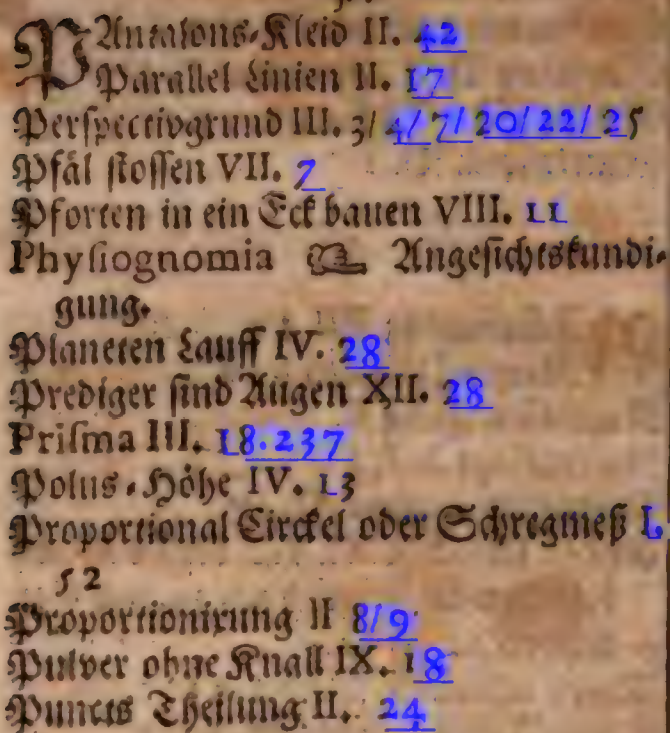 PAntalons-Kleid II. 42
Parallel Linien II. 17
Perspectivgrund III. 3/ 4/ 7/ 20/ 22/ 25
Pfäl stossen VII. 7
Pforten in ein Eck bauen VIII. 11
Physiognomia ☞ Angesichtskundi-
gung.
Planeten Lauff IV. 28
Prediger sind Augen XII. 28
Prisma III. 18. 237
Polus-Höhe IV. 13
Proportional Circkel oder Schregmeß I.
52
Proportionirung II 8/ 9
Pulver ohne Knall IX. 18
Puncts Theilung II. 24